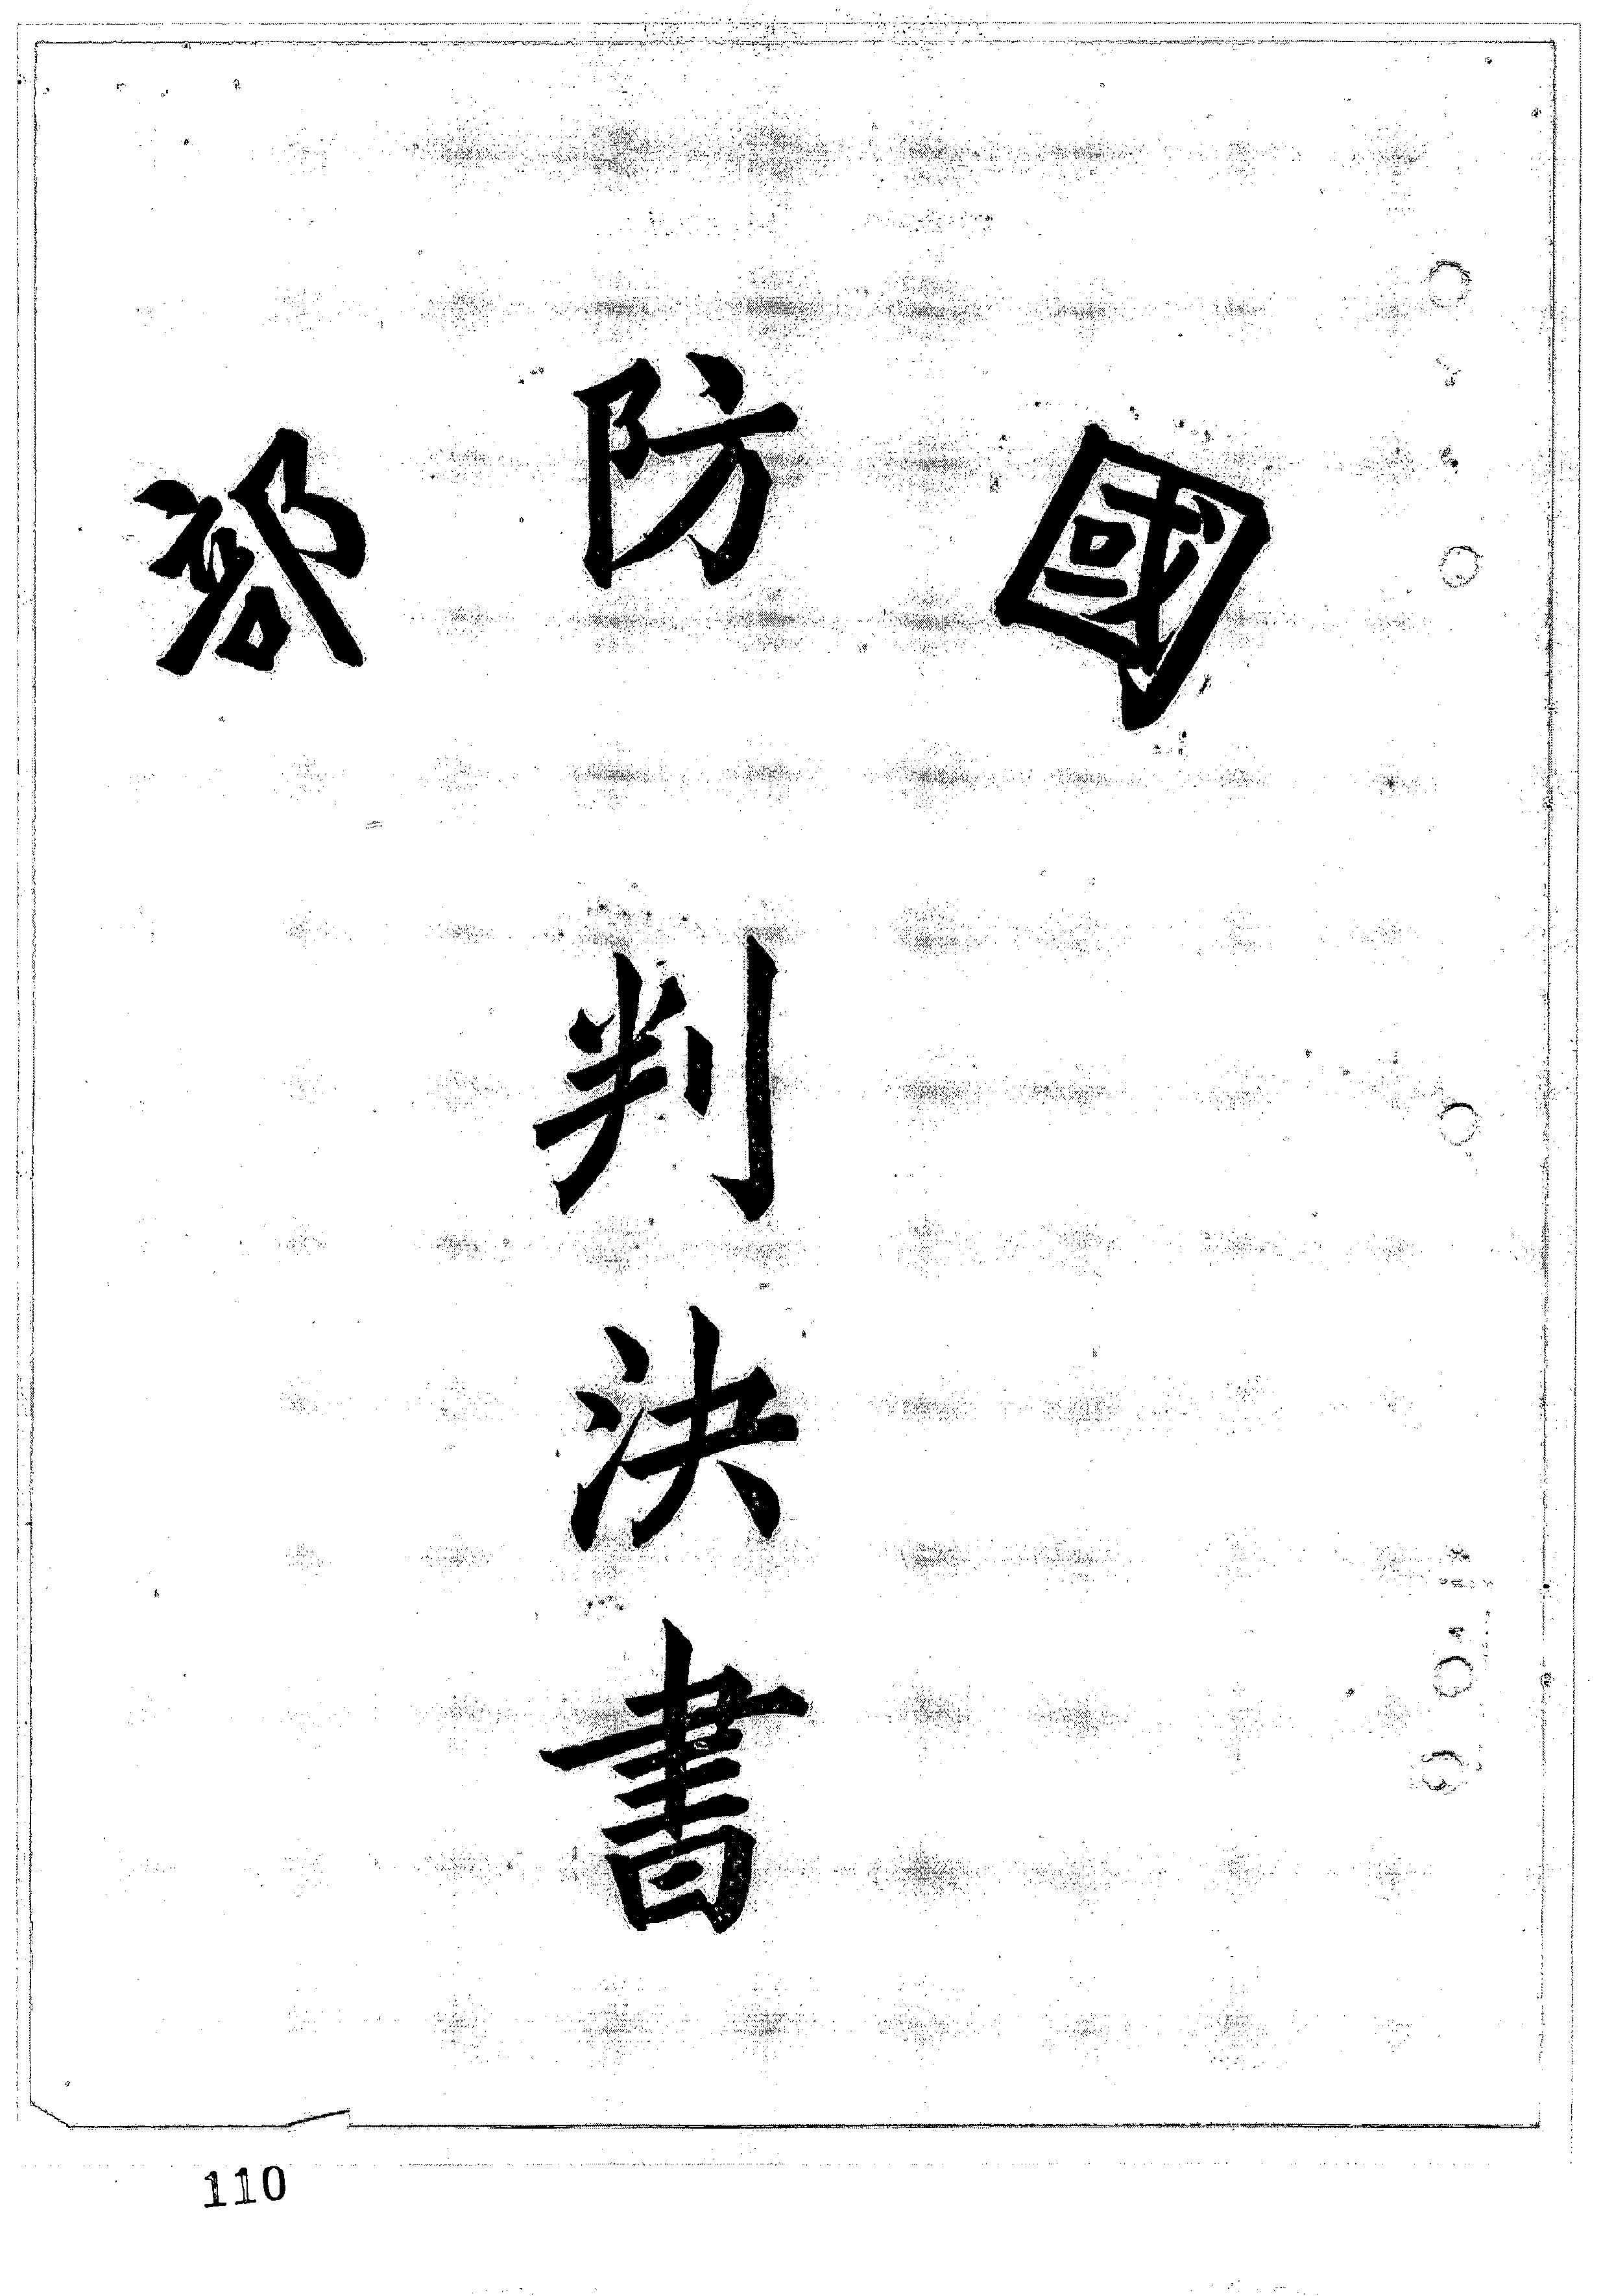 國防部
判決書
110